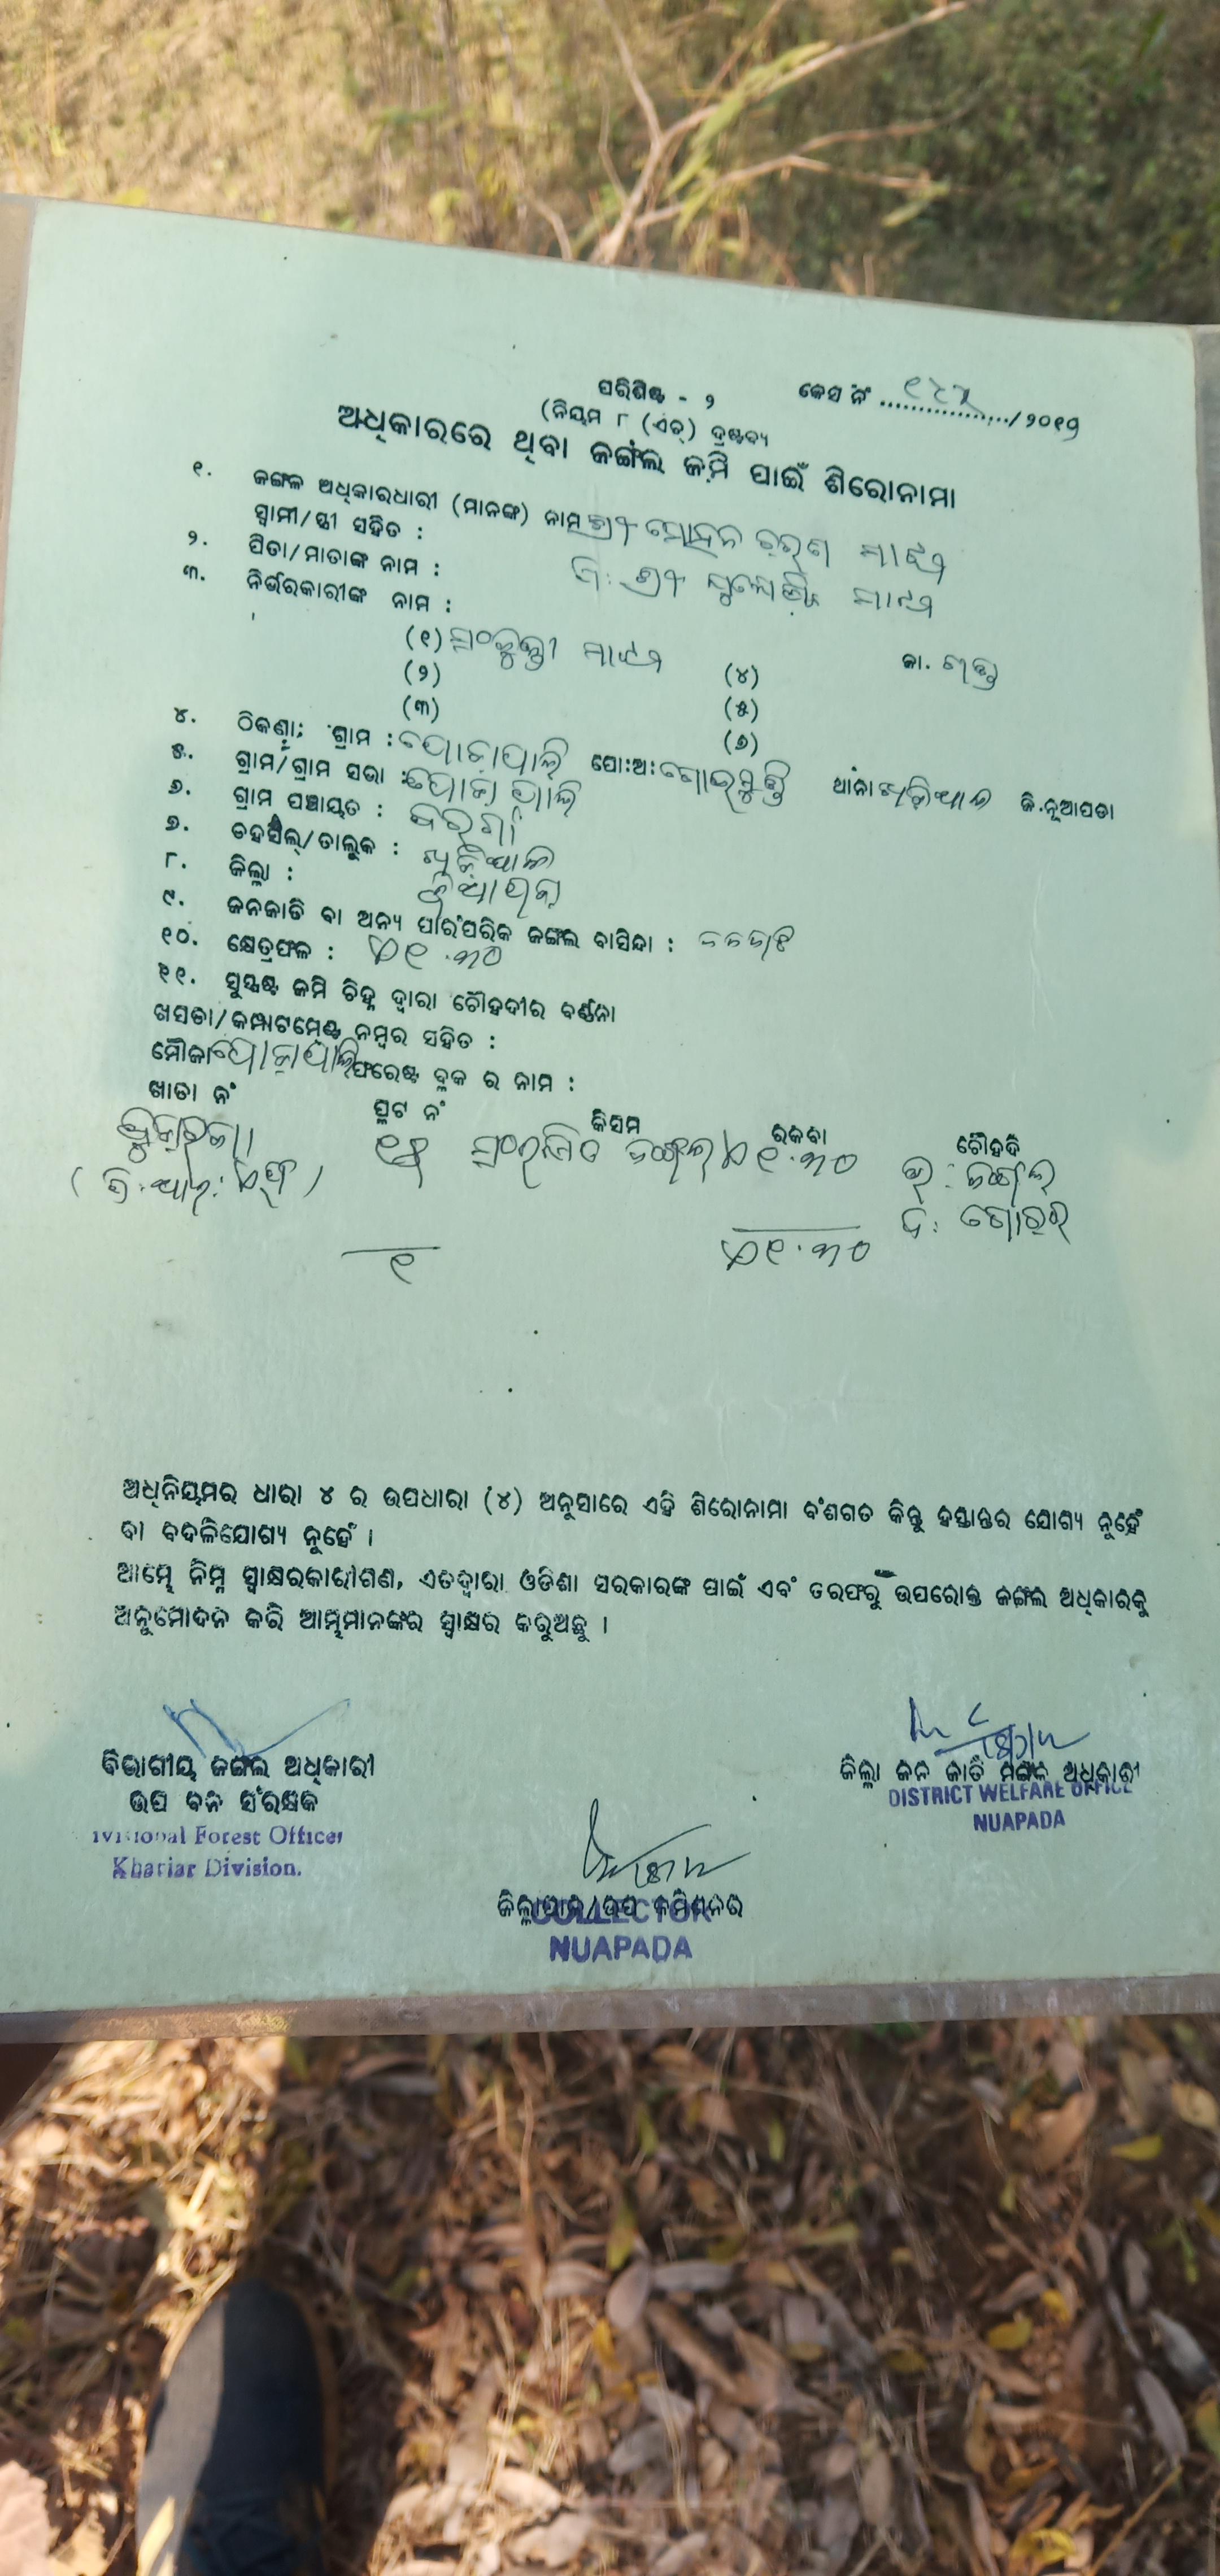 ପରିଶିଷ୍ଟ - ୨
କେସ ନଂ ............/୨୦୧୨
(ନିୟମ ୮ (ଏଚ୍) ଦ୍ରଷ୍ଟବ୍ୟ
ଅଧିକାରରେ ଥିବା ଜଙ୍ଗଲ ଜମି ପାଇଁ ଶିରୋନାମା
୧. ଜଙ୍ଗଲ ଅଧିକାରଧାରୀ (ମାନଙ୍କ) ନାମ ଶ୍ରୀ ମୋହନ ଚରଣ ମାଝୀ
ସ୍ୱାମୀ/ସ୍ତ୍ରୀ ସହିତ :
୨. ପିତା/ମାତାଙ୍କ ନାମ : ପି: ଶ୍ରୀ ମାଝୀ
୩. ନିର୍ଭରକାରୀଙ୍କ ନାମ :
(୧) ମାଝୀ (୪) ଜା.
(୨) (୫)
(୩) (୬)
୪. ଠିକଣା: ଗ୍ରାମ : ପୋ:ଅ: ଥାନା ଖଡ଼ିଆଳ ଜି.ନୂଆପଡା
୫. ଗ୍ରାମ/ଗ୍ରାମ ସଭା :
୬. ଗ୍ରାମ ପଞ୍ଚାୟତ :
୭. ତହସିଲ୍/ତାଲୁକ : ଖଡ଼ିଆଳ
୮. ଜିଲ୍ଲା : ନୂଆପଡ଼ା
୯. ଜନଜାତି ବା ଅନ୍ୟ ପାରଂପରିକ ଜଙ୍ଗଲ ବାସିନ୍ଦା : ଜନଜାତି
୧୦. କ୍ଷେତ୍ରଫଳ : ଏ୧.୩୦
୧୧. ସୁସ୍ପଷ୍ଟ ଜମି ଚିହ୍ନ ଦ୍ୱାରା ଚୌହଦୀର ବର୍ଣ୍ଣନା
ଖସଡା/କମ୍ପାଟମେଣ୍ଟ ନମ୍ବର ସହିତ :
ମୌଜା ଫରେଷ୍ଟ ବ୍ଲକ ର ନାମ :
ଖାତା ନଂ ପ୍ଲଟ ନଂ କିସମ ରକବା ଚୌହଦି
ସଂରକ୍ଷିତ ଜଙ୍ଗଲ ଏ୧.୩୦ ଉ: ଜଙ୍ଗଲ
(ଡି.ଆର.ଏଫ) ଦ: ଗୋଚର
୧ ଏ୧.୩୦
ଅଧିନିୟମର ଧାରା ୪ ର ଉପଧାରା (୪) ଅନୁସାରେ ଏହି ଶିରୋନାମା ବଂଶଗତ କିନ୍ତୁ ହସ୍ତାନ୍ତର ଯୋଗ୍ୟ ନୁହେଁ
ବା ବଦଳିଯୋଗ୍ୟ ନୁହେଁ ।
ଆମ୍ଭେ ନିମ୍ନ ସ୍ୱାକ୍ଷରକାରୀଗଣ, ଏତଦ୍ୱାରା ଓଡିଶା ସରକାରଙ୍କ ପାଇଁ ଏବଂ ତରଫରୁ ଉପରୋକ୍ତ ଜଙ୍ଗଲ ଅଧିକାରକୁ
ଅନୁମୋଦନ କରି ଆମ୍ଭମାନଙ୍କର ସ୍ୱାକ୍ଷର କରୁଅଛୁ ।
ବିଭାଗୀୟ ଜଙ୍ଗଲ ଅଧିକାରୀ
ଉପ ବନ ସଂରକ୍ଷକ
ivisional Forest Officer
Khariar Division.
ଜିଲ୍ଲା ଜନ ଜାତି ମଙ୍ଗଳ ଅଧିକାରୀ
DISTRICT WELFARE OFFICE
NUAPADA
ଜିଲ୍ଲାପାଳ/ଉପ କମିଶନର
COLLECTOR
NUAPADA